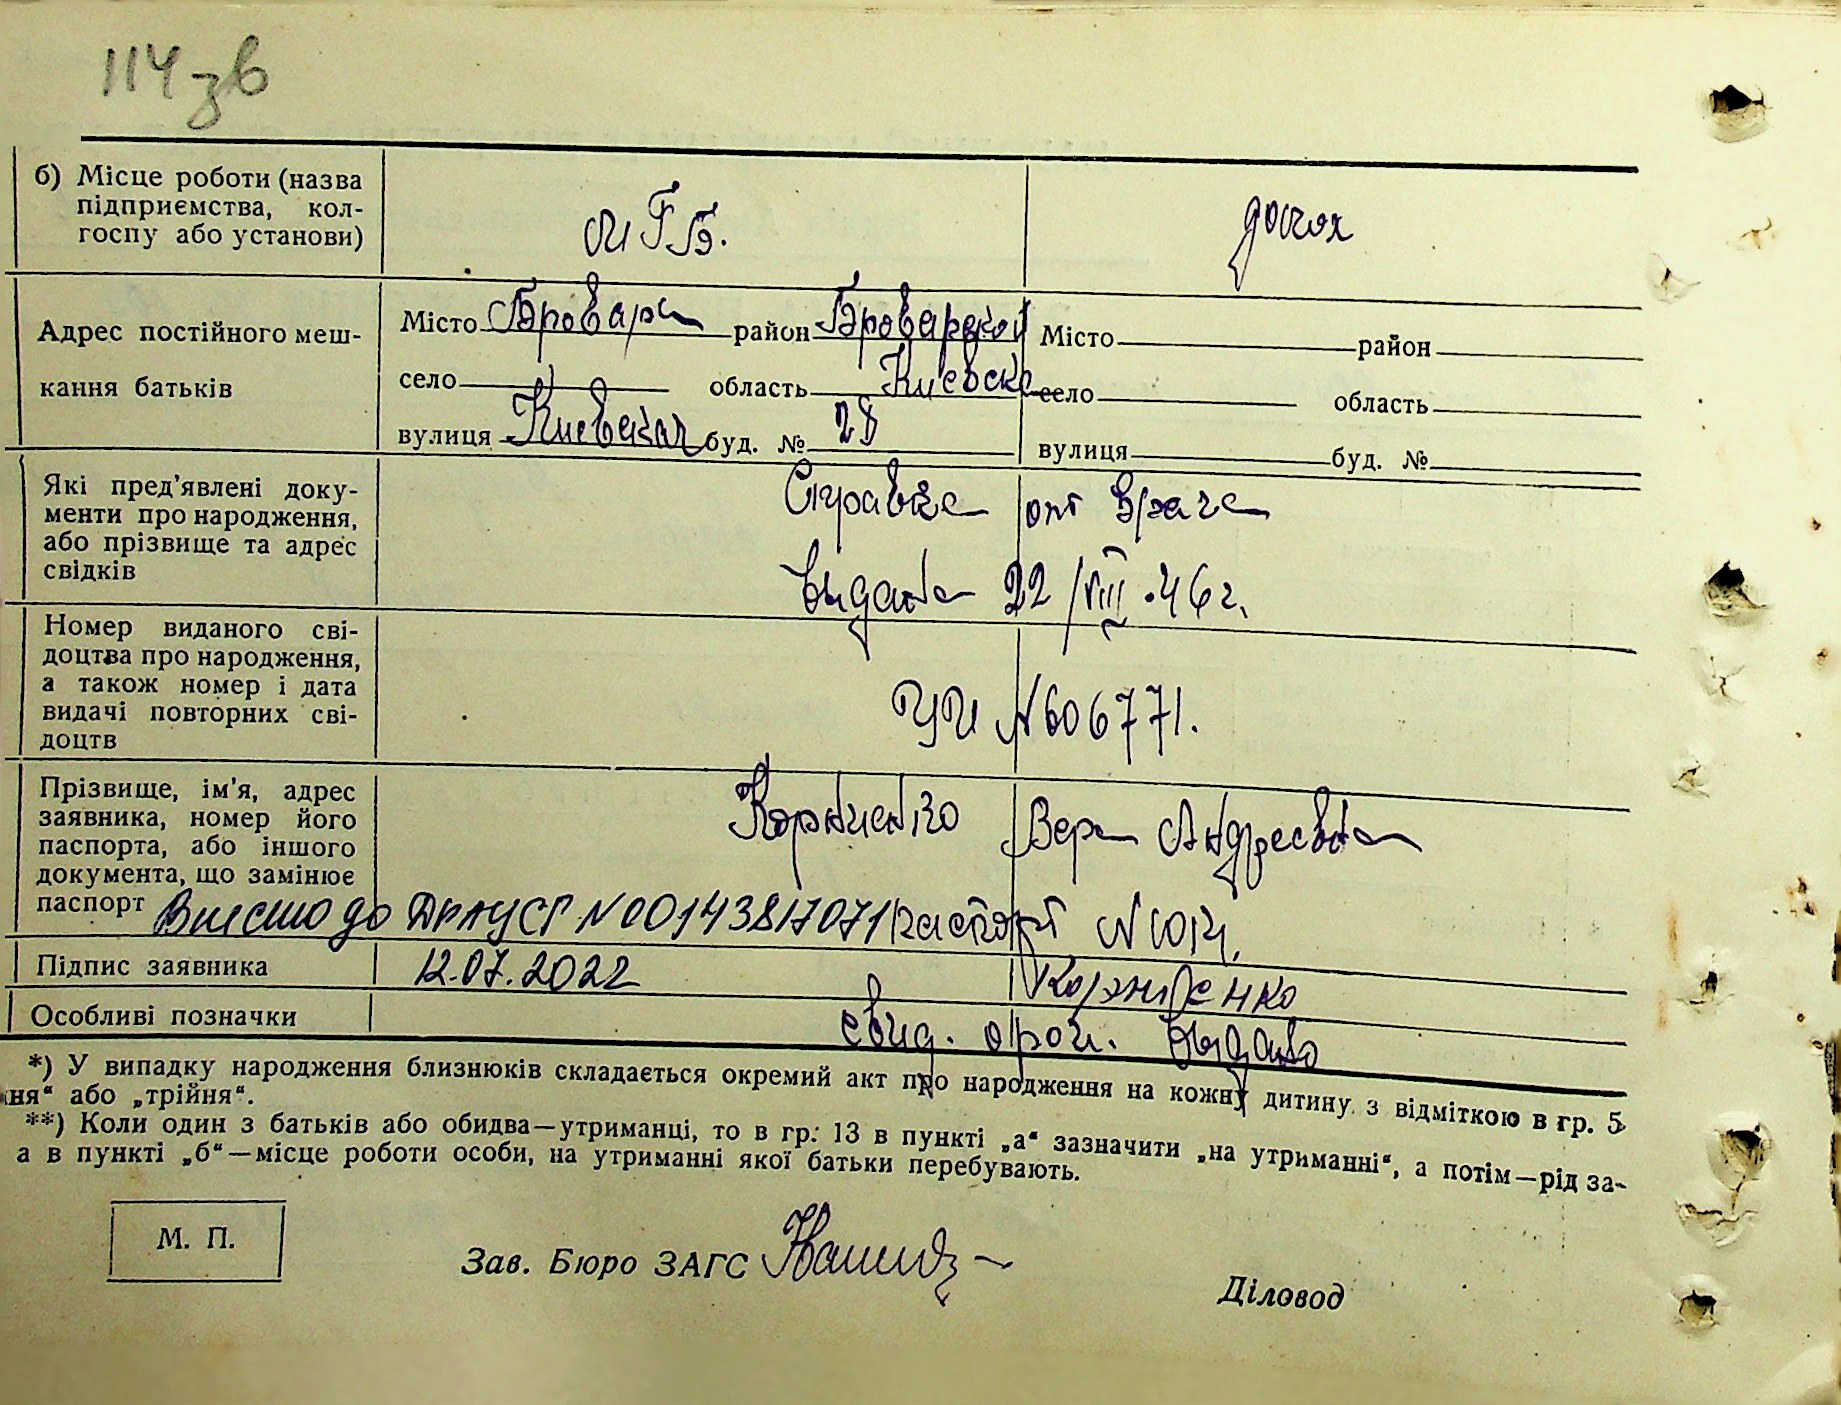 114 зв
б) Місце роботи (назва
підприємства, кол-
госпу або установи)
МГБ.
дома
Адрес постійного меш-
кання батьків
Місто Бровари район Броварской
село область Киевска
вулиця Киевская буд. № 28
Місто район
село область
вулиця буд. №
Які пред'явлені доку-
менти про народження,
або прізвище та адрес
свідків
Справка от врача
выдана 22/VIII.46 г.
Номер виданого сві-
доцтва про народження,
а також номер і дата
видачі повторних сві-
доцтв
№ 606771.
Прізвище, ім'я, адрес
заявника, номер його
паспорта, або іншого
документа, що замінює
паспорт
Корниенко Вера Андреевна
паспорт
Внесено до ДРАЦСГ № 00143817071
12.07.2022
Підпис заявника
Корниенко
Особливі позначки
свид. о рож. выдано
*) У випадку народження близнюків складається окремий акт про народження на кожну дитину з відміткою в гр. 5
ня“ або „трійня“.
**) Коли один з батьків або обидва—утриманці, то в гр. 13 в пункті „а“ зазначити „на утриманні“, а потім—рід за-
а в пункті „б“—місце роботи особи, на утриманні якої батьки перебувають.
М. П.
Зав. Бюро ЗАГС
Діловод